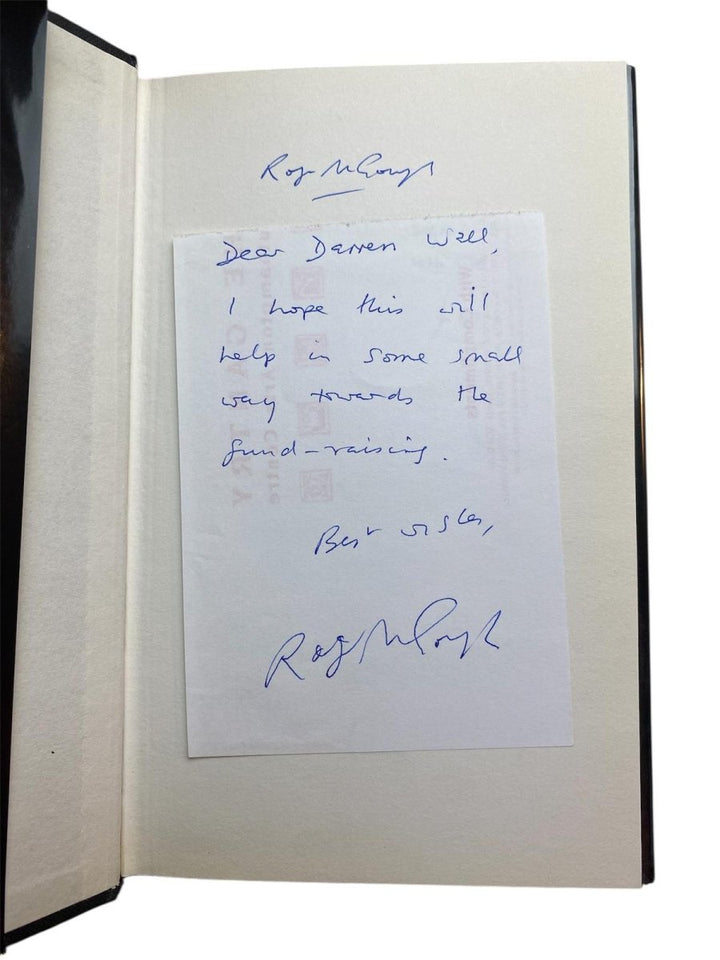 Roger McGough
Dear Darren Wall,
I hope this will
help in some small
way towards the
fund-raising.
Best wishes,
Roger McGough